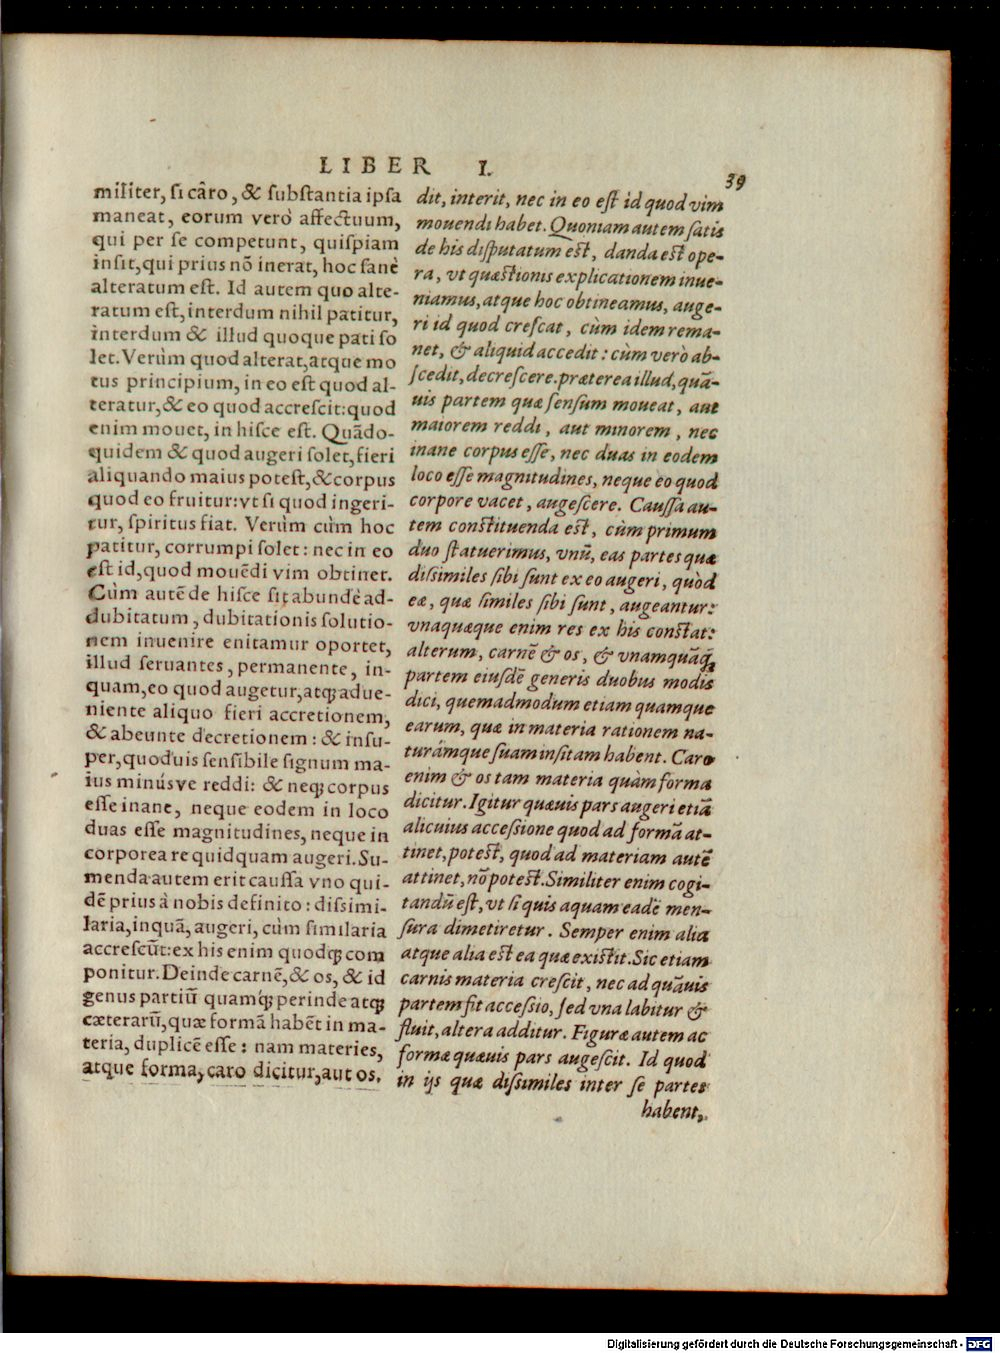 LIBER I.
39
militer, si câro, & substantia ipsa
maneat, eorum verò affectuum,
qui per se competunt, quispiam
insit, qui prius nō inerat, hoc sanè
alteratum est. Id autem quo alte-
ratum est, interdum nihil patitur,
interdum & illud quoque pati so
let. Verùm quod alterat, atque mo
tus principium, in eo est quod al-
teratur, & eo quod accrescit: quod
enim mouet, in hisce est. Quādo-
quidem & quod augeri solet, fieri
aliquando maius potest, & corpus
quod eo fruitur: vt si quod ingeri-
tur, spiritus fiat. Verùm cùm hoc
patitur, corrumpi solet: nec in eo
est id, quod mouēdi vim obtinet.
Cùm autē de hisce sit abundè ad-
dubitatum, dubitationis solutio-
nem inuenire enitamur oportet,
illud seruantes, permanente, in-
quam, eo quod augetur, atq; adue-
niente aliquo fieri accretionem,
& abeunte decretionem: & insu-
per, quoduis sensibile signum ma-
ius minúsve reddi: & neq; corpus
esse inane, neque eodem in loco
duas esse magnitudines, neque in
corporea re quidquam augeri. Su-
menda autem erit caussa vno qui-
dē prius à nobis definito: dissimi-
laria, inquā, augeri, cùm similaria
accrescūt: ex his enim quodq; com
ponitur. Deinde carnē, & os, & id
genus partiū quamq́; perinde atq;
cæterarū, quæ formā habēt in ma-
teria, duplicē esse: nam materies,
atque forma, caro dicitur, aut os.
dit, interit, nec in eo est id quod vim
mouendi habet. Quoniam autem satis
de his disputatum est, danda est ope-
ra, vt quæstionis explicationem inue-
niamus, atque hoc obtineamus, auge-
ri id quod crescat, cùm idem rema-
net, & aliquid accedit: cùm verò ab-
scedit, decrescere. præterea illud, quā-
uis partem quæ sensum moueat, aut
maiorem reddi, aut minorem, nec
inane corpus esse, nec duas in eodem
loco esse magnitudines, neque eo quod
corpore vacet, augescere. Caussa au-
tem constituenda est, cùm primum
duo statuerimus, vnū, eas partes quæ
dissimiles sibi sunt ex eo augeri, quòd
eæ, quæ similes sibi sunt, augeantur:
vnaquæque enim res ex his constat:
alterum, carnē & os, & vnamquāq́;
partem eiusdē generis duobus modis
dici, quemadmodum etiam quamque
earum, quæ in materia rationem na-
turámque suam insitam habent. Caro
enim & os tam materia quàm forma
dicitur. Igitur quæuis pars augeri etiā
alicuius accessione quod ad formā at-
tinet, potest, quod ad materiam autē
attinet, nō potest. Similiter enim cogi-
tandū est, vt si quis aquam eadē men-
sura dimetiretur. Semper enim alia
atque alia est ea quæ existit. Sic etiam
carnis materia crescit, nec ad quāuis
partem fit accessio, sed vna labitur &
fluit, altera additur. Figuræ autem ac
formæ quæuis pars augescit. Id quod
in ijs quæ dissimiles inter se partes
habent,
Digitalisierung gefördert durch die Deutsche Forschungsgemeinschaft - DFG